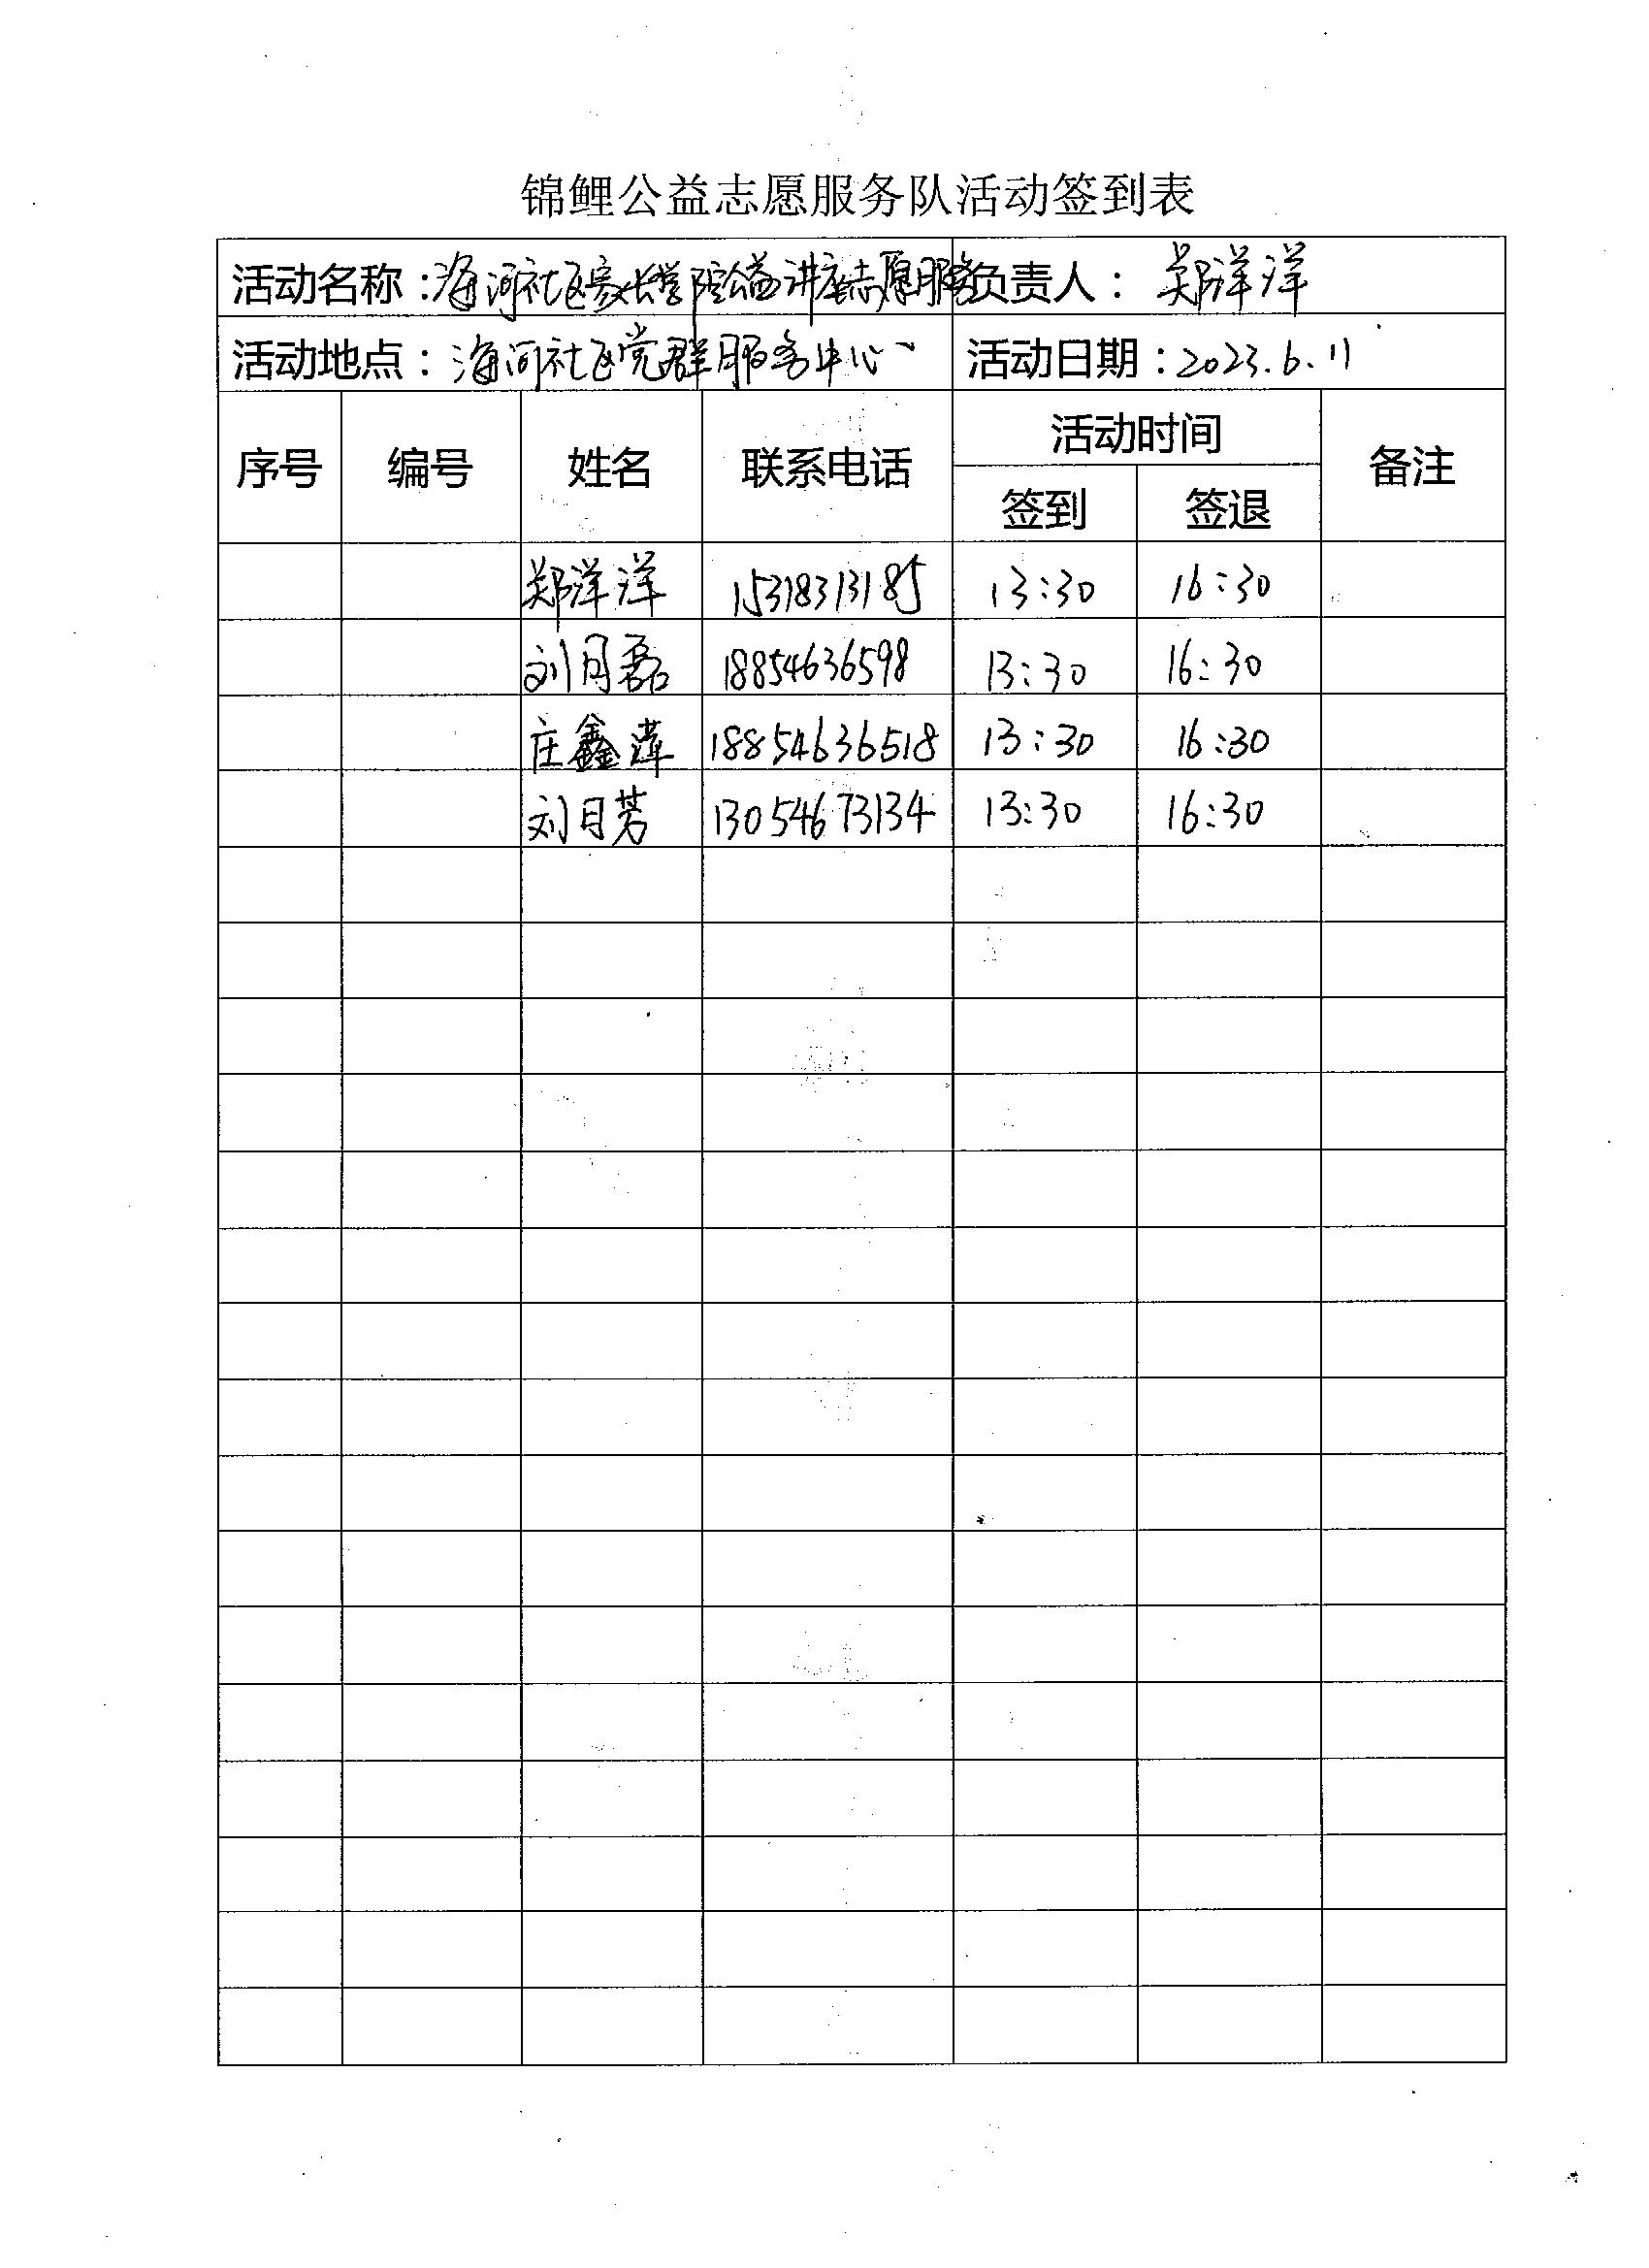 锦鲤公益志愿服务队活动签到表
活动名称：海河社区家长学院公益讲座志愿服务 负责人：郑洋洋
活动地点：海河社区党群服务中心 活动日期：2023.6.11
序号 编号 姓名 联系电话 活动时间 备注
签到 签退
郑洋洋 15318313185 13:30 16:30
刘月磊 18854636598 13:30 16:30
庄鑫萍 18854636518 13:30 16:30
刘月芳 13054673134 13:30 16:30